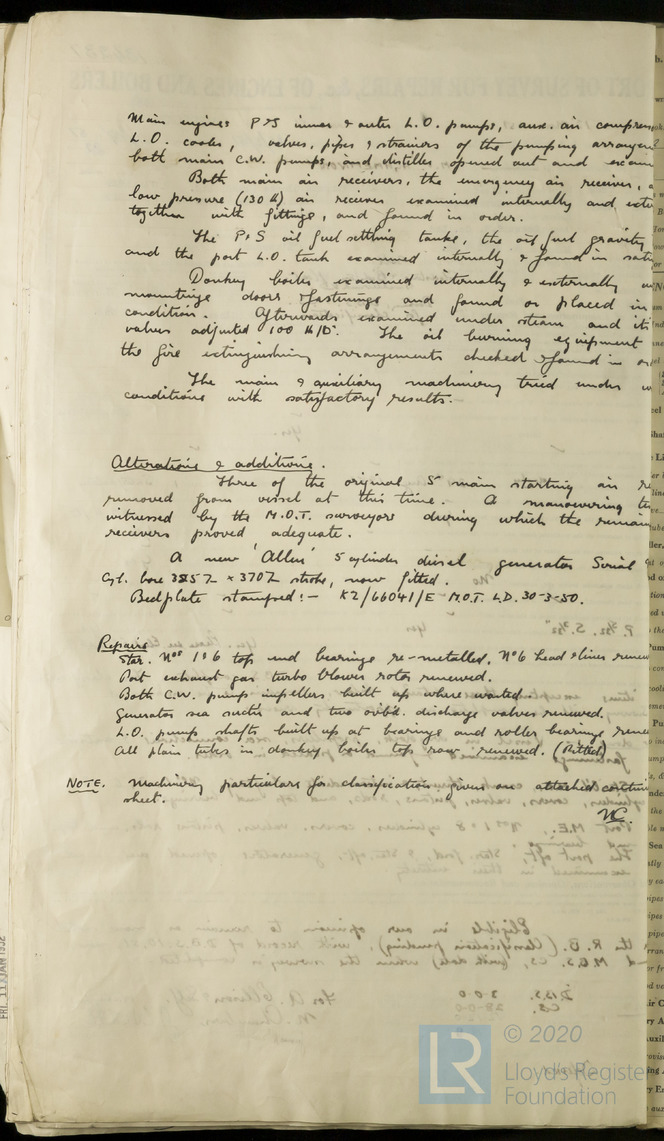 Main engines P & S inner & outer L.O. pumps, aux. air compress
L.O. cooler, valves, pipes & strainers of the pumping arrangem
both main C.W. pumps, and distiller opened out and exam
Both main air receivers, the emergency air receiver, a
low pressure (130 lb) air receiver examined internally and exte
together with fittings, and found in order.
The P & S oil fuel settling tanks, the oil fuel gravity
and the port L.O. tank examined internally & found in sati
Donkey boiler examined internally & externally w
mountings doors & fastenings and found or placed in
condition. Afterwards examined under steam and its
valves adjusted 100 lb/□". The oil burning equipment
the fire extinguishing arrangements checked & found in o
The main & auxiliary machinery tried under w
conditions with satisfactory results.
Alterations & additions.
Three of the original 5 main starting air re
removed from vessel at this time. A manoeuvering
witnessed by the M.O.T. surveyors during which the remain
receivers proved adequate.
A new 'Allen' 5 cylinder diesel generator Serial
Cyl. bore × stroke, now fitted.
Bedplate stamped:- K2/66041/E M.O.T. L.D. 30-3-50.
Repairs
Star. Nos 1 & 6 top end bearings re-metalled, No 6 head & liner renew
Port exhaust gas turbo blower rotor renewed.
Both C.W. pump impellers built up where wasted.
Generator sea suction and two ovb'd. discharge valves renewed.
L.O. pump shafts built up at bearings and roller bearings rene
All plain tubes in donkey boiler top row renewed. (Pitted)
NOTE. Machinery particulars for classification given on attached contin
sheet.
FRI. 11 JAN 1952
LR
© 2020
Lloyd's Register
Foundation